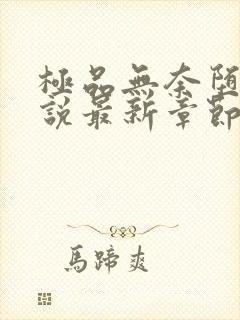 極品無奈堕
說最新章節
馬蹄爽